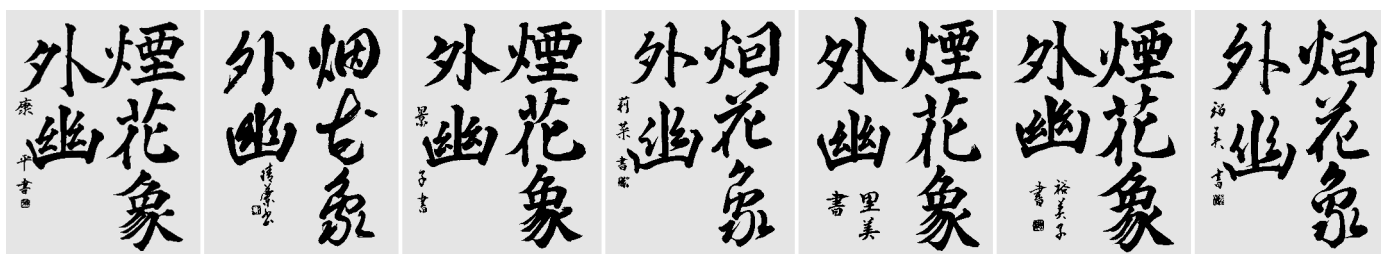 煙花象
外幽
康平書
烟花象
外幽
書
煙花象
外幽
景子書
烟花象
外幽
莉菜書
煙花象
外幽
里美
書
煙花象
外幽
裕美子
書
烟花象
外幽
美書